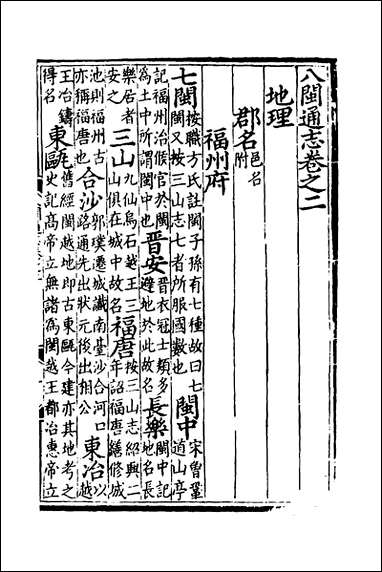 八閩通志卷之二
地理
郡名 邑名附
福州府
七閩 按職方氏註閩子孫有七種故曰七閩又按三山志七者所服國數也 閩中 宋曾鞏道山亭
記福州治候官於閩為土中所謂閩中也 晉安 晉衣冠士類多避地於此故名 長樂 閩中記地名長
樂居者安之 三山 九仙烏石越王三山俱在城中故名 福唐 按三山志紹興二年詔福唐繕修城
池則福州古亦稱福唐也 合沙 郭璞遷城讖南臺沙合河口路通先出狀元後出相公 東冶 以越
王冶鑄得名 東甌 舊經閩越地即古東甌今建亦其地考之史記高帝立無諸為閩越王都治惠帝立